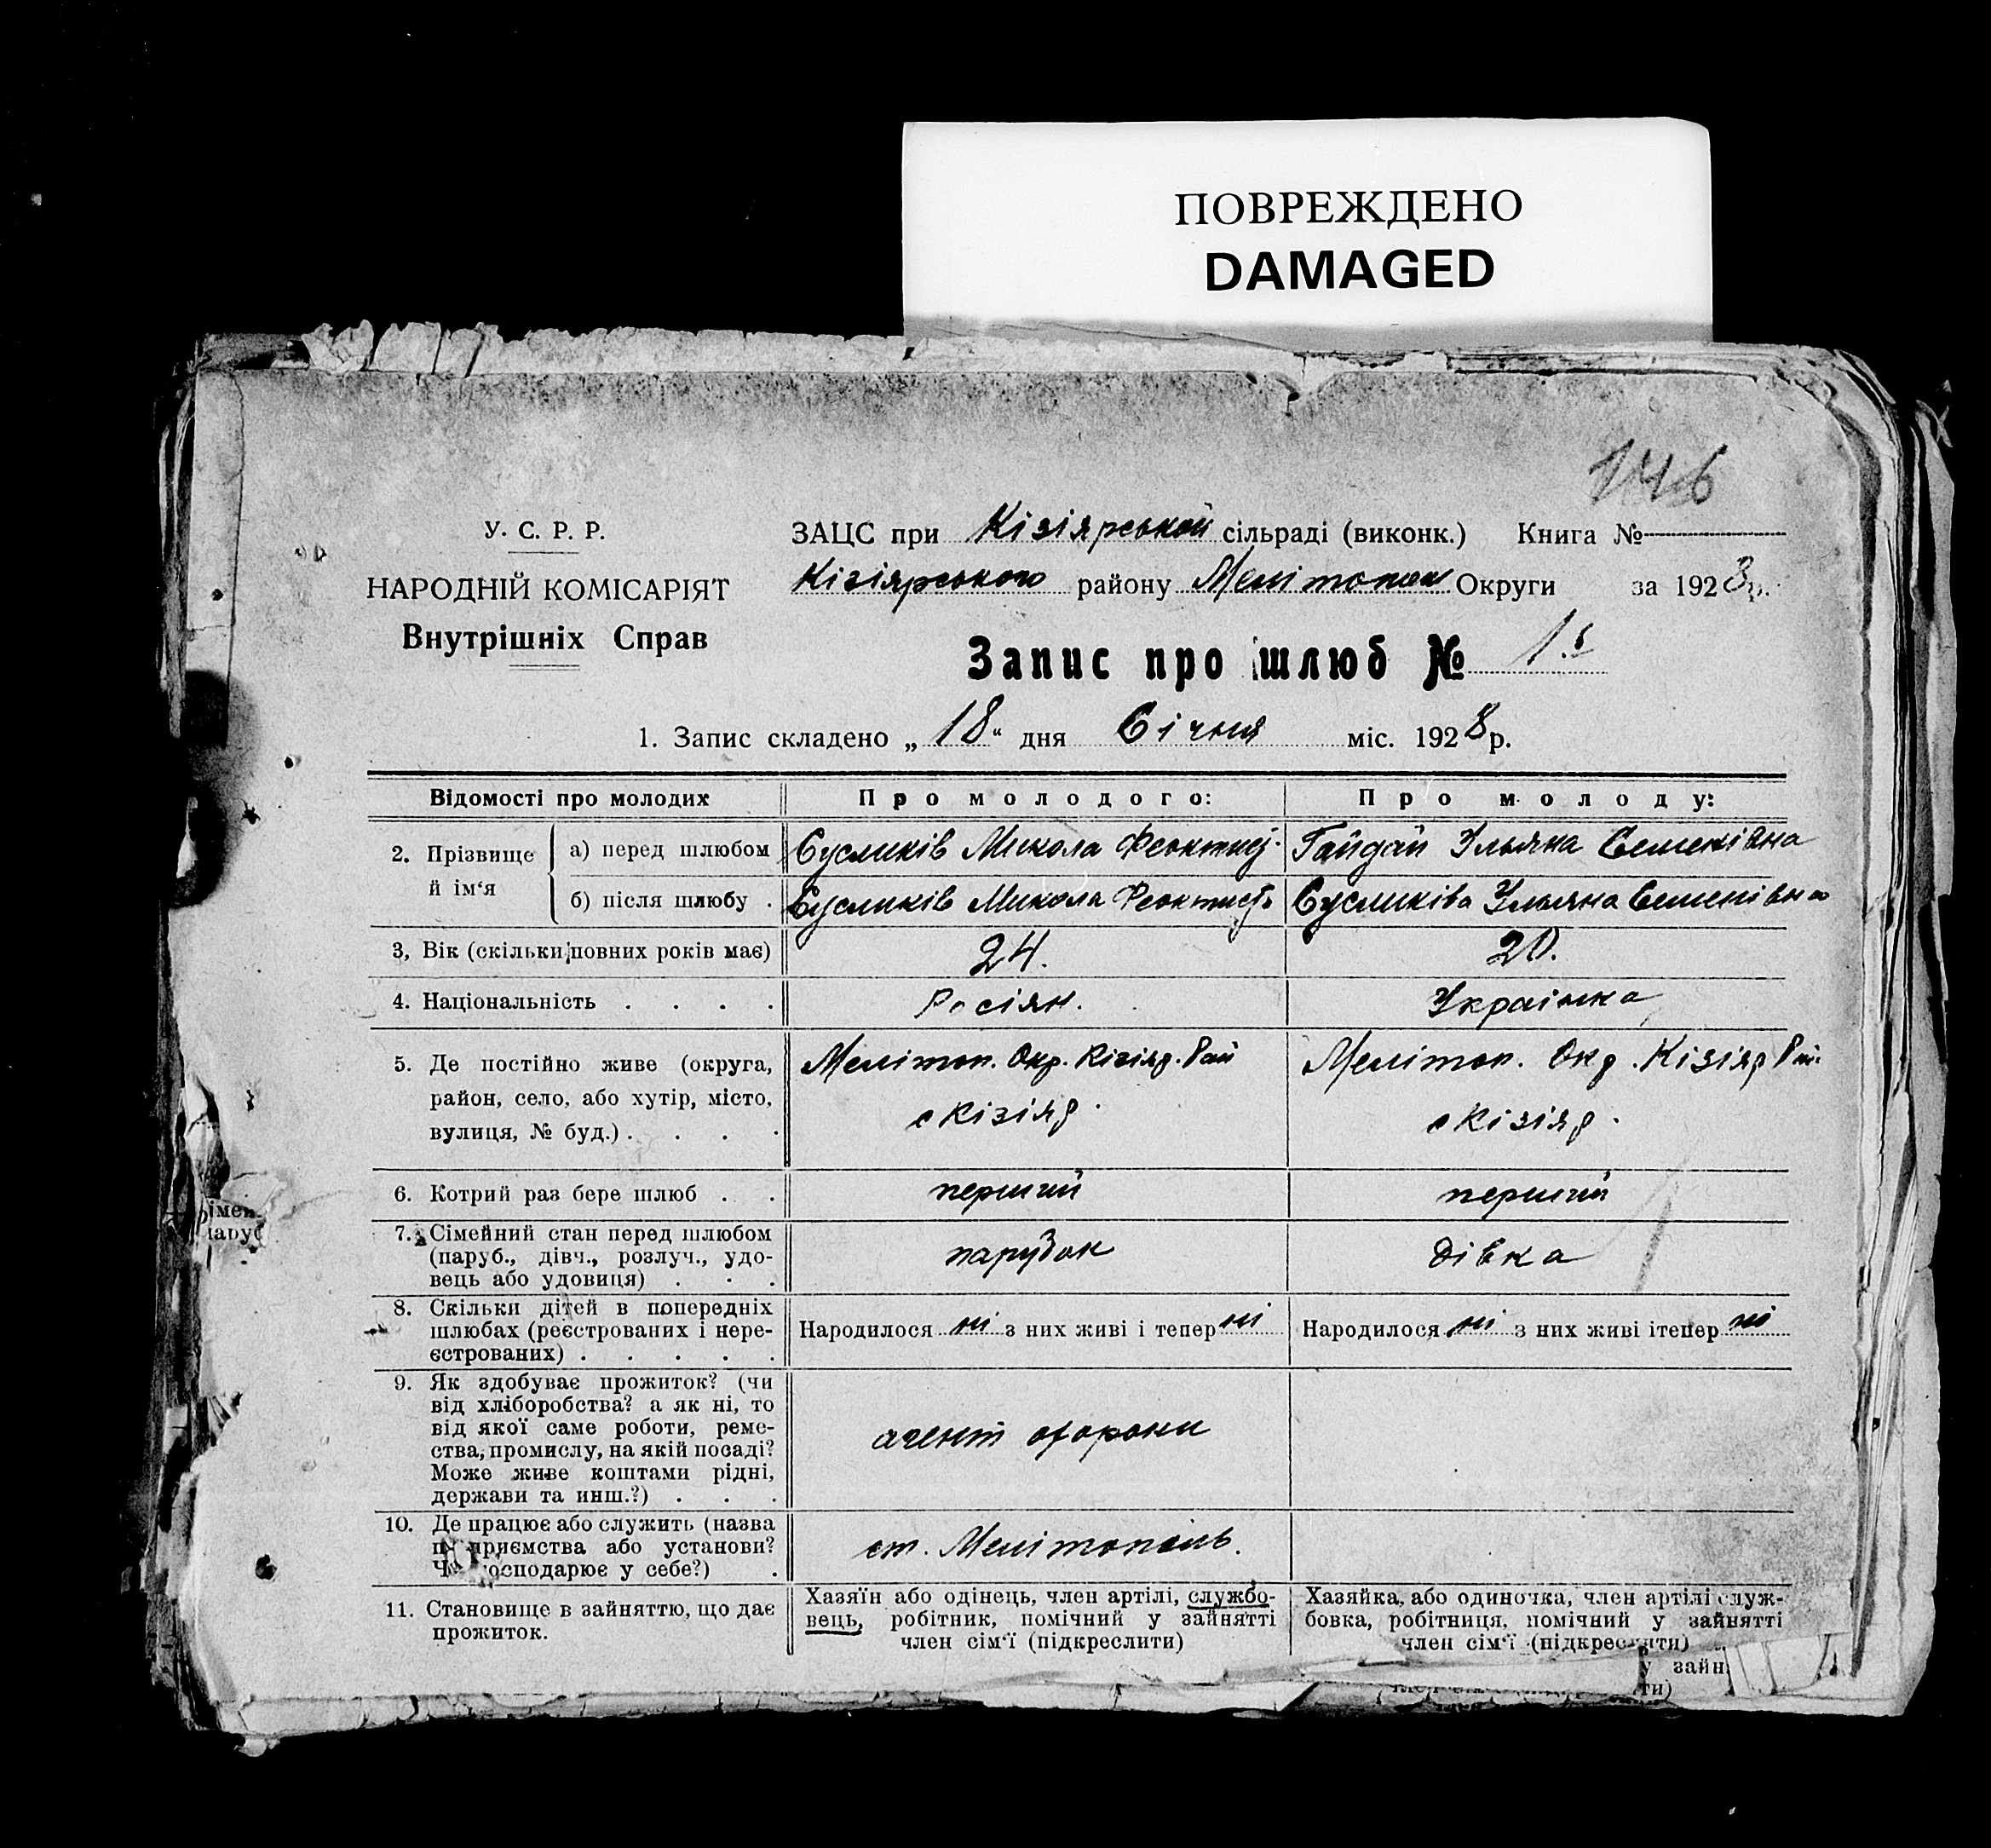 ПОВРЕЖДЕНО
DAMAGED
146
У. С. Р. Р.
НАРОДНІЙ КОМІСАРІЯТ
Внутрішніх Справ
ЗАЦС при Кізіярській сільраді (виконк.) Книга №
Кізіярського району Мелітопол Округи за 1928 р.
Запис про шлюб № 1
1. Запис складено „18“ дня Січня міс. 1928 р.
Відомості про молодих Про молодого: Про молоду:
2. Прізвище й ім‘я
а) перед шлюбом Сусликів Микола Феоктист. Гайдай Ульяна Семенівна
б) після шлюбу . Сусликів Микола Феоктист. Сусликіва Ульяна Семенівна
3, Вік (скільки повних років має) 24. 20.
4. Національність . . . . Росіян. Українка
5. Де постійно живе (округа,
район, село, або хутір, місто,
вулиця, № буд.) . . . .
Мелітоп. Окр. Кізіяр. Рай
с Кізіяр.
Мелітоп. Окр. Кізіяр Рай.
с Кізіяр.
6. Котрий раз бере шлюб . . перший перший
7. Сімейний стан перед шлюбом
(паруб., дівч., розлуч., удо-
вець або удовиця) . . .
парубок дівка
8. Скільки дітей в попередніх
шлюбах (реєстрованих і нере-
єстрованих) . . . . .
Народилося ні з них живі і тепер ні Народилося ні з них живі ітепер ні
9. Як здобуває прожиток? (чи
від хліборобства? а як ні, то
від якої саме роботи, реме-
ства, промислу, на якій посаді?
Може живе коштами рідні,
держави та инш.?) . . .
агент охорони
10. Де працює або служить (назва
приємства або установи?
осподарює у себе?) .
ст. Мелітополь.
11. Становище в зайняттю, що дає
прожиток.
Хазяїн або одінець, член артілі, службо-
вець, робітник, помічний у зайнятті
член сім‘ї (підкреслити)
Хазяйка, або одиночка, член артілі служ-
бовка, робітниця, помічний у зайнятті
член сім‘ї (підкреслити)
у зайн
ти)